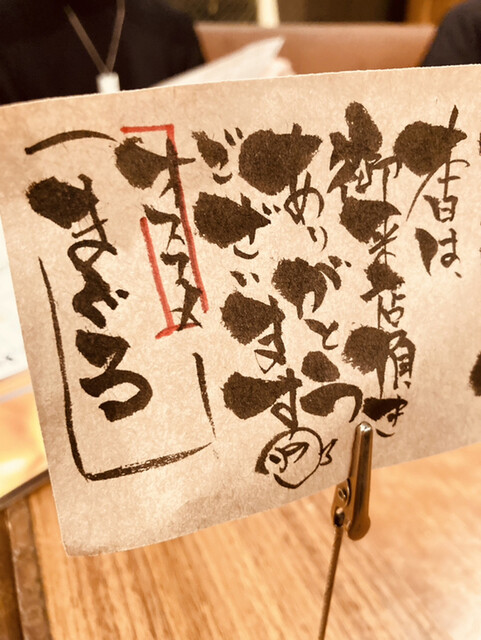 昔は、
御来店頂き
ありがとう
ございます
オススメ
まぐろ